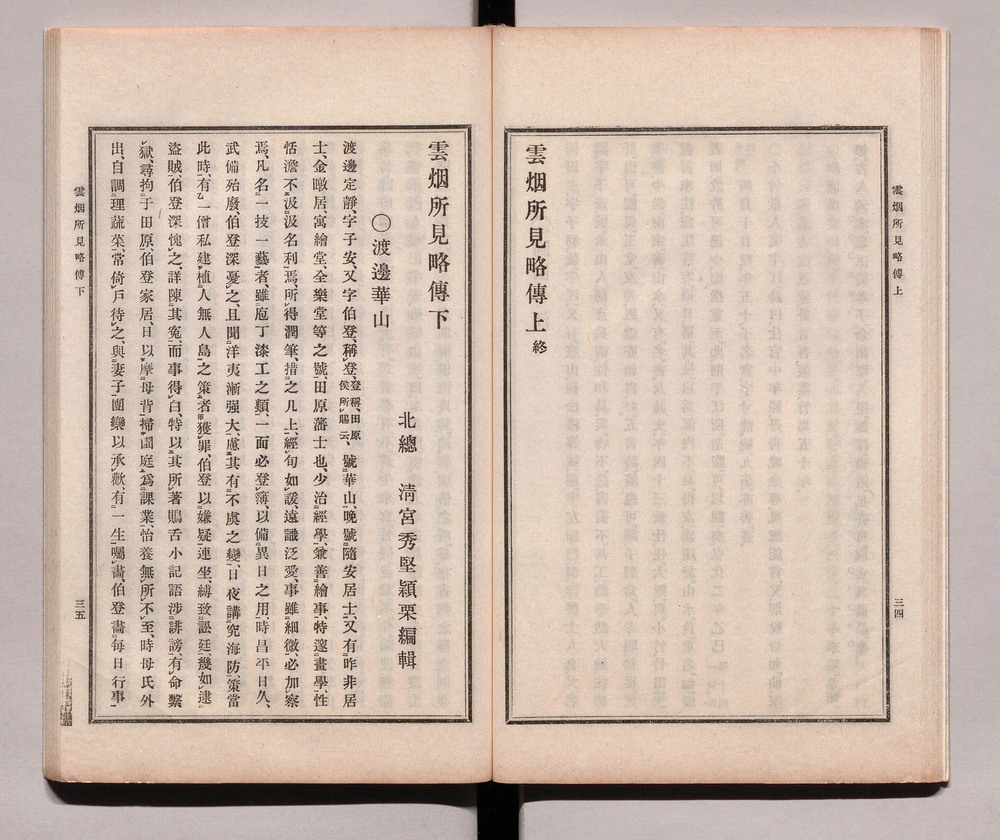 雲烟所見略傳上
三四
雲烟所見略傳上終
雲烟所見略傳下
北總 淸宮秀堅穎栗編輯
○渡邊華山
渡邊定靜、字子安、又字伯登、稱登、登稱、田原侯所賜云、號華山、晚號隨安居士、又有昨非居
士、金暾居、寓繪堂、全樂堂等之號、田原藩士也、少治經學、兼善繪事、特邃畫學、性
恬澹不汲汲名利焉、所得潤筆、措之几上、經旬如諼、遠識泛愛、事雖細微、必加察
焉、凡名一技一藝者、雖庖丁漆工之類、一面必登簿、以備異日之用、時昌平日久、
武備殆廢、伯登深憂之、且聞洋夷漸强大、慮其有不虞之變、日夜講究海防策、當
此時、有一僧私建植人無人島之策者、獲罪、伯登以嫌疑連坐、縛致訟廷、幾如逮
盜賊、伯登深愧之、詳陳其寃、而事得白、特以其所著鴃舌小記語涉誹謗、有命繫
獄、尋拘于田原、伯登家居、日以摩母背掃園庭爲課業、怡養無所不至、時母氏外
出、自調理蔬菜、常倚戶待之、與妻子團欒以承歡、有一生囑畫伯登、畵每日行事
雲烟所見略傳下
三五